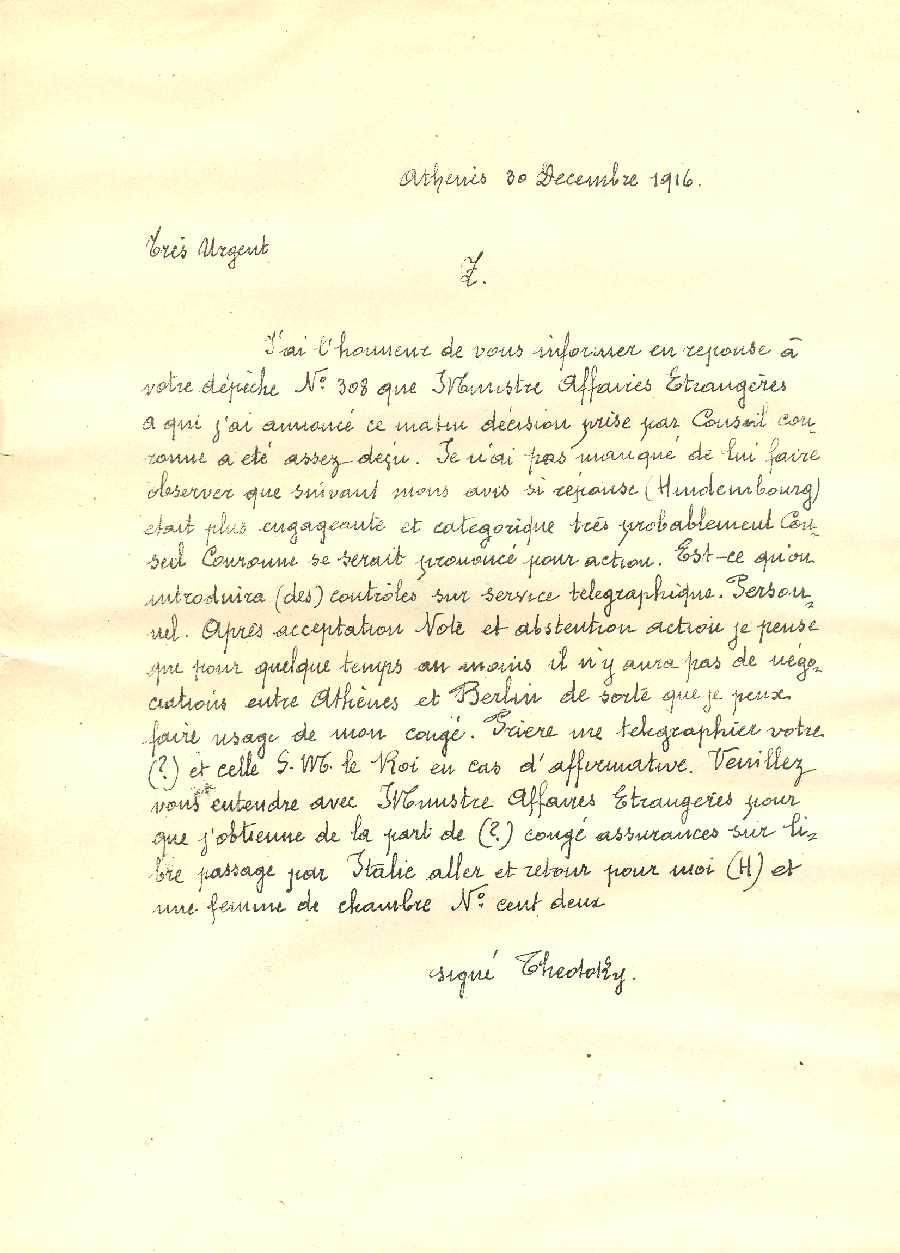 Athenis 30 Decembre 1916.
Très Urgent
Z.
J'ai l'honneur de vous informer en reponse à
votre dépêche No. 308 que Ministre Affaires Etrangères
a qui j'ai annoncé ce matin décision prise par Conseil cou-
ronne a eté assez deçu. Je n'ai pas manqué de lui faire
observer que suivant mons avis si réponse (Hindembourg)
etait plus engageante et categorique très probablement Con-
seil Couronne se serait prononcé pour action. Est-ce qu'on
introduira (des) contrôles sur service telegraphique. Person-
nel. Après acceptation Note et abstention action je pense
que pour quelque temps au moins il n'y aura pas de négo-
ciations entre Athènes et Berlin de sorte que je peux
faire usage de mon congé. Priere me telegraphier votre
(?) et celle S. M. le Roi en cas d'affirmative. Veuillez
vous entendre avec Ministre Affaires Etrangeres pour
que j'obtienne de la part de (?) congé assurances sur li-
bre passage par Italie aller et retour pour moi (H) et
une femme de chambre No. cent deux
signé Theotoky.